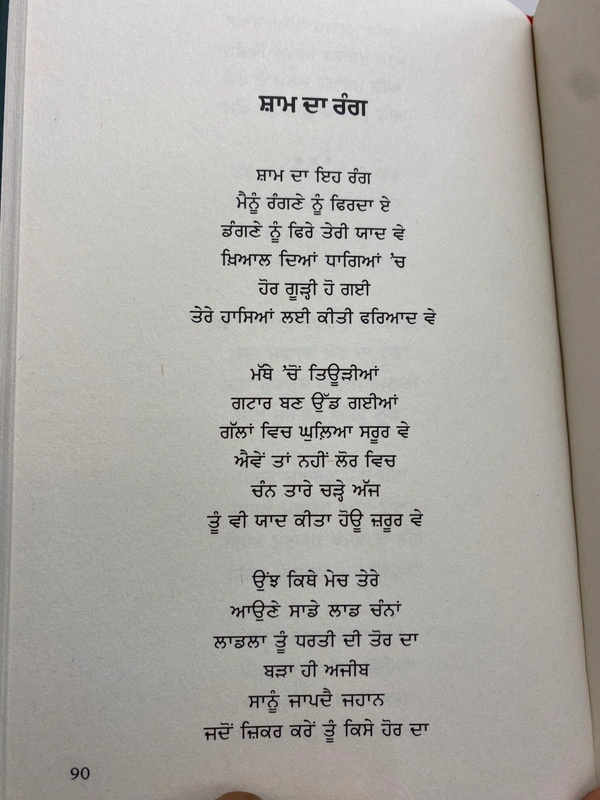 ਸ਼ਾਮ ਦਾ ਰੰਗ
ਸ਼ਾਮ ਦਾ ਇਹ ਰੰਗ
ਮੈਨੂੰ ਰੰਗਣੇ ਨੂੰ ਫਿਰਦਾ ਏ
ਡੰਗਣੇ ਨੂੰ ਫਿਰੇ ਤੇਰੀ ਯਾਦ ਵੇ
ਖ਼ਿਆਲ ਦਿਆਂ ਧਾਗਿਆਂ ’ਚ
ਹੋਰ ਗੂੜ੍ਹੀ ਹੋ ਗਈ
ਤੇਰੇ ਹਾਸਿਆਂ ਲਈ ਕੀਤੀ ਫਰਿਆਦ ਵੇ
ਮੱਥੇ ’ਚੋਂ ਤਿਊੜੀਆਂ
ਗਟਾਰ ਬਣ ਉੱਡ ਗਈਆਂ
ਗੱਲਾਂ ਵਿਚ ਘੁਲਿਆ ਸਰੂਰ ਵੇ
ਐਵੇਂ ਤਾਂ ਨਹੀਂ ਲੋਰ ਵਿਚ
ਚੰਨ ਤਾਰੇ ਚੜ੍ਹੇ ਅੱਜ
ਤੂੰ ਵੀ ਯਾਦ ਕੀਤਾ ਹੋਊ ਜ਼ਰੂਰ ਵੇ
ਉਂਝ ਕਿਥੇ ਮੇਚ ਤੇਰੇ
ਆਉਣੇ ਸਾਡੇ ਲਾਡ ਚੰਨਾਂ
ਲਾਡਲਾ ਤੂੰ ਧਰਤੀ ਦੀ ਤੋਰ ਦਾ
ਬੜਾ ਹੀ ਅਜੀਬ
ਸਾਨੂੰ ਜਾਪਦੈ ਜਹਾਨ
ਜਦੋਂ ਜ਼ਿਕਰ ਕਰੇਂ ਤੂੰ ਕਿਸੇ ਹੋਰ ਦਾ
90